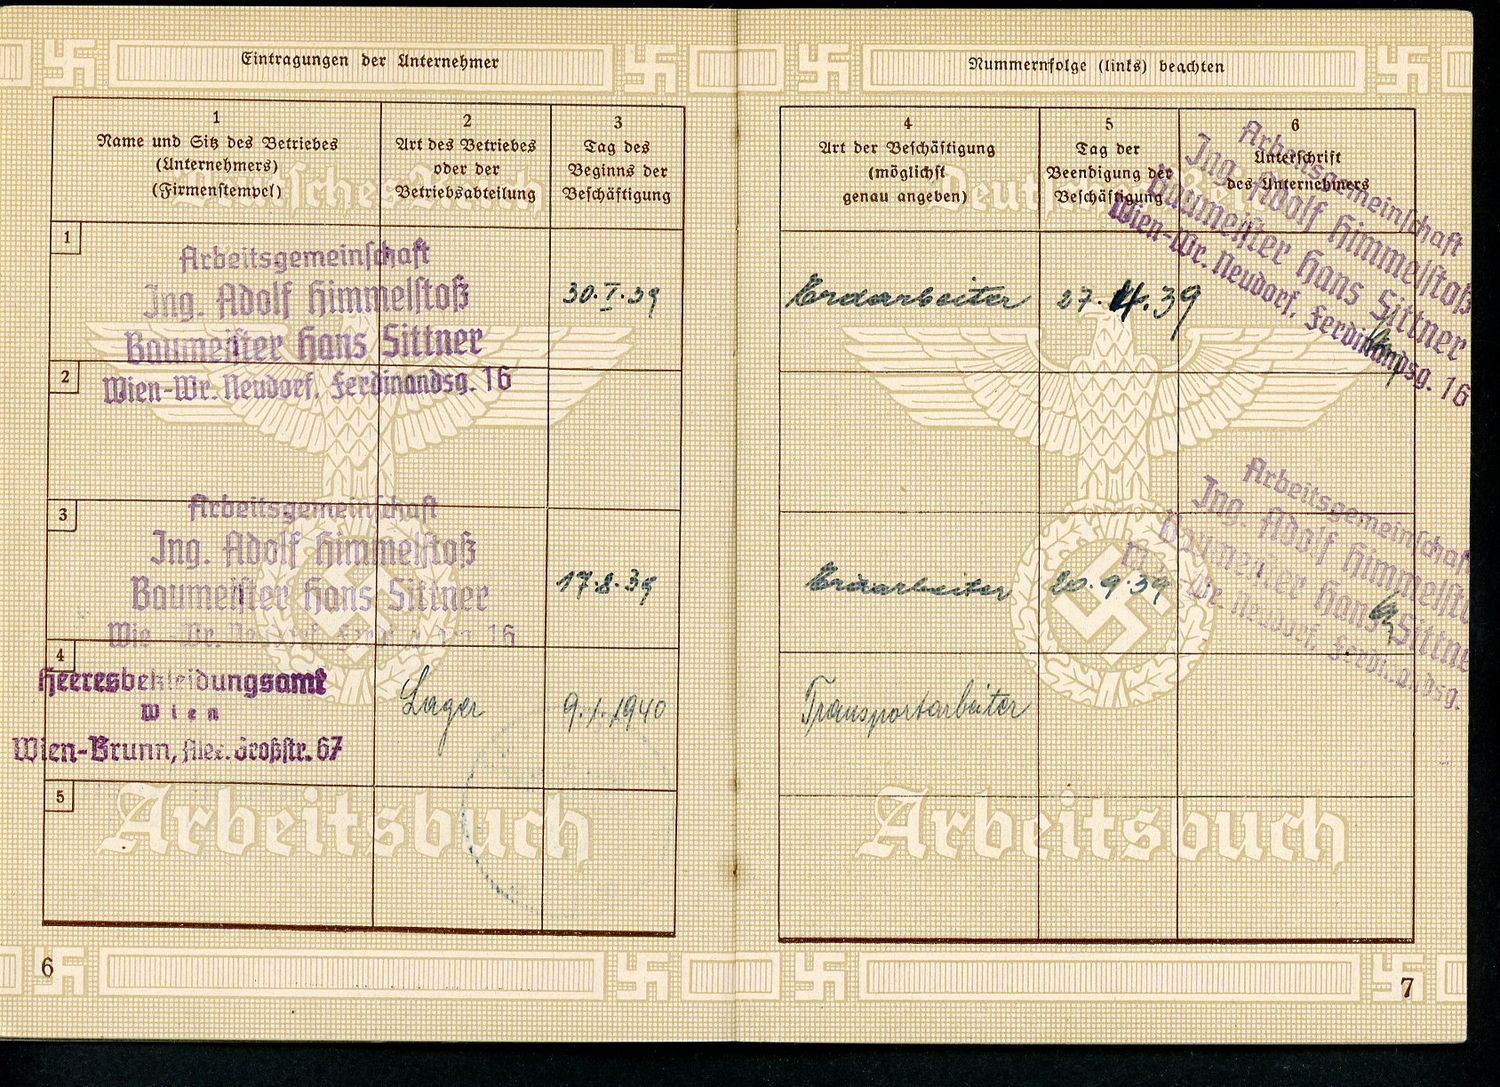 Eintragungen der Unternehmer
1
Name und Sitz des Betriebes
(Unternehmers)
(Firmenstempel)
2
Art des Betriebes
oder der
Betriebsabteilung
3
Tag des
Beginns der
Beschäftigung
1
Arbeitsgemeinschaft
Ing. Adolf Himmelstoß
Baumeister Hans Sittner
Wien-Wr. Neudorf, Ferdinandsg. 16
30.I.39
2
3
Arbeitsgemeinschaft
Ing. Adolf Himmelstoß
Baumeister Hans Sittner
Wie Wr. Neudorf, 16
17.8.39
4
Heeresbekleidungsamt
Wien
Wien-Brunn, Alex. Großstr. 67
Lager
9.1.1940
5
Arbeitsbuch
6
Nummernfolge (links) beachten
4
Art der Beschäftigung
(möglichst
genau angeben)
5
Tag der
Beendigung der
Beschäftigung
6
Unterschrift
des Unternehmers
Deutsches
Arbeitsgemeinschaft
Ing. Adolf Himmelstoß
Baumeister Hans Sittner
Wien-Wr. Neudorf, Ferdinandsg. 16
Erdarbeiter
27. .39
Arbeitsgemeinschaft
Ing. Adolf Himmelsto
Baumeister Hans Sittne
Wr. Neudorf, Ferdinandsg.
Erdarbeiter
20.9.39
Transportarbeiter
Arbeitsbuch
7